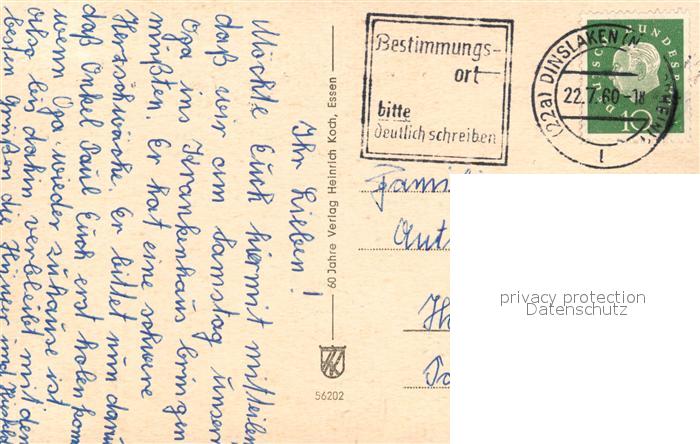 Ihr Lieben!
Möchte Euch hiermit mitteilen
daß wir am Samstag unsern
Opa ins Krankenhaus bringen
mußten. Er hat eine schwere
Herzschwäche. Er bittet nun darum
daß Onkel Paul Euch erst holen kommt
wenn Opa wieder zuhause ist
Also bis dahin verbleibt mit den
besten Grüßen die
60 Jahre Verlag Heinrich Koch, Essen
56202
Bestimmungs-
ort
bitte
deutlich schreiben
(22a) DINSLAKEN
22.7.60-18
10
Famil
privacy protection
Datenschutz